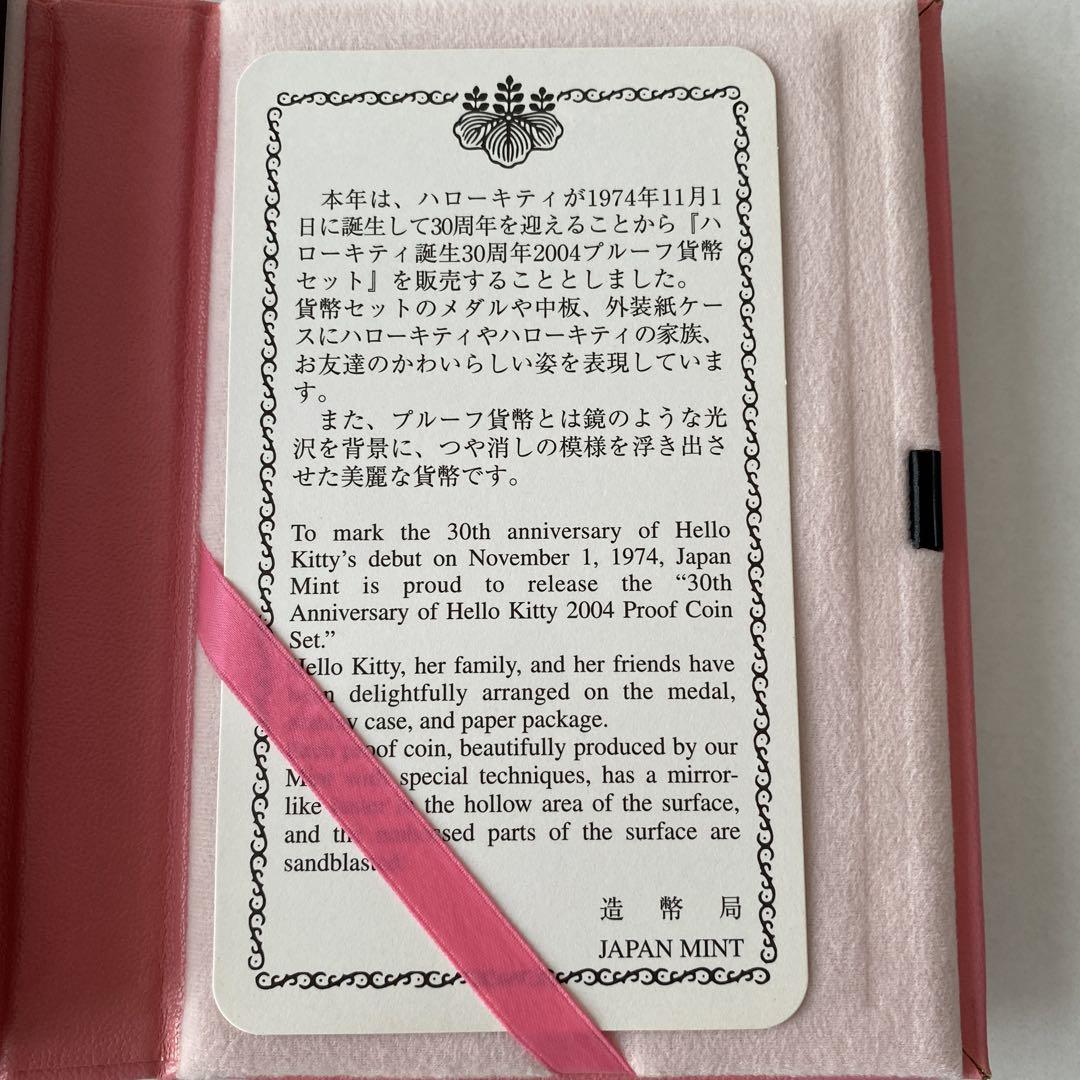 本年は、ハローキティが1974年11月1
日に誕生して30周年を迎えることから『ハ
ローキティ誕生30周年2004プルーフ貨幣
セット』を販売することとしました。
貨幣セットのメダルや中板、外装紙ケー
スにハローキティやハローキティの家族、
お友達のかわいらしい姿を表現していま
す。
また、プルーフ貨幣とは鏡のような光
沢を背景に、つや消しの模様を浮き出さ
せた美麗な貨幣です。
To mark the 30th anniversary of Hello
Kitty's debut on November 1, 1974, Japan
Mint is proud to release the “30th
Anniversary of Hello Kitty 2004 Proof Coin
Set.”
Hello Kitty, her family, and her friends have
been delightfully arranged on the medal,
case, and paper package.
Each proof coin, beautifully produced by our
Mint with special techniques, has a mirror-
like luster in the hollow area of the surface,
and the embossed parts of the surface are
sandblasted.
造幣局
JAPAN MINT